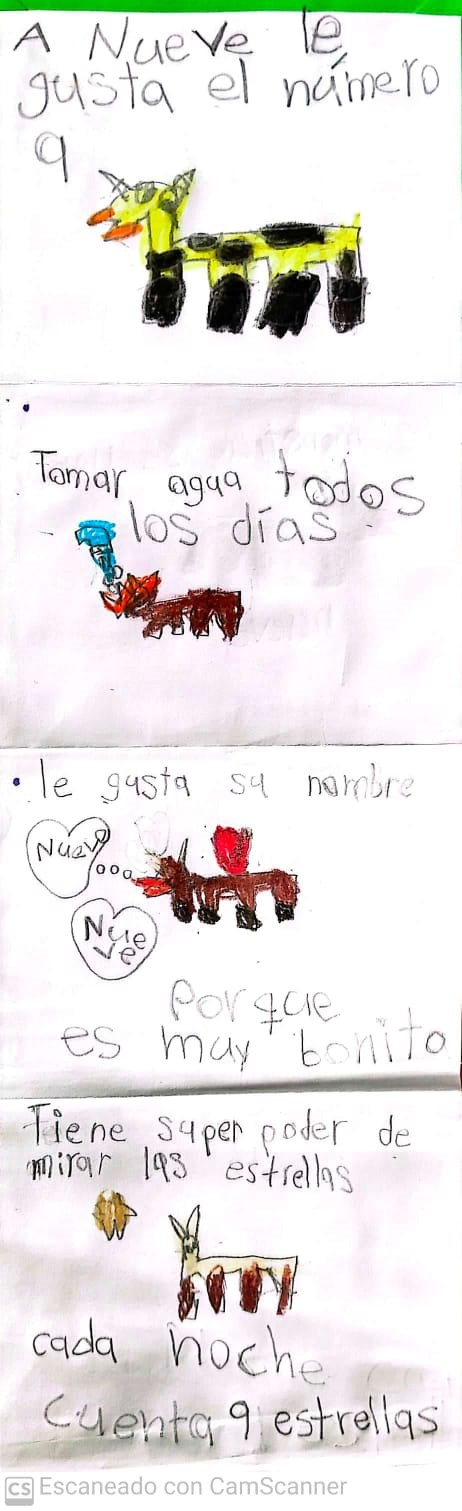 A Nueve le
gusta el número
9
Tomar agua todos
los días
le gusta su nombre
Nueve
Nue
ve
Porque
es muy bonito
Tiene super poder de
mirar las estrellas
cada noche
cuenta 9 estrellas
CS Escaneado con CamScanner